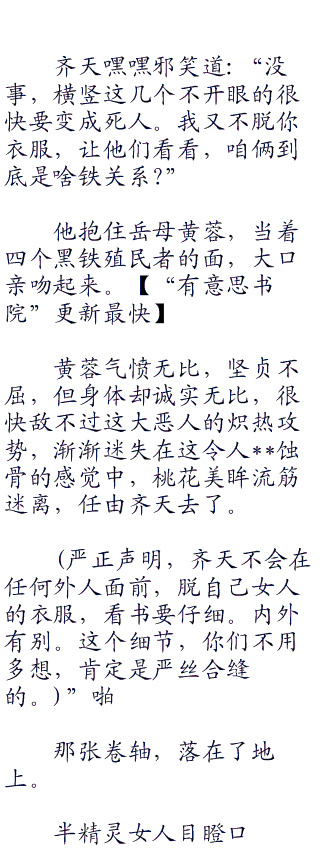 齐天嘿嘿邪笑道:“没
事，横竖这几个不开眼的很
快要变成死人。我又不脱你
衣服，让他们看看，咱俩到
底是啥铁关系?”
他抱住岳母黄蓉，当着
四个黑铁殖民者的面，大口
亲吻起来。【“有意思书
院”更新最快】
黄蓉气愤无比，坚贞不
屈，但身体却诚实无比，很
快敌不过这大恶人的炽热攻
势，渐渐迷失在这令人**蚀
骨的感觉中，桃花美眸流筋
迷离，任由齐天去了。
(严正声明，齐天不会在
任何外人面前，脱自己女人
的衣服，看书要仔细。内外
有别。这个细节，你们不用
多想，肯定是严丝合缝
的。)”啪
那张卷轴，落在了地
上。
半精灵女人目瞪口